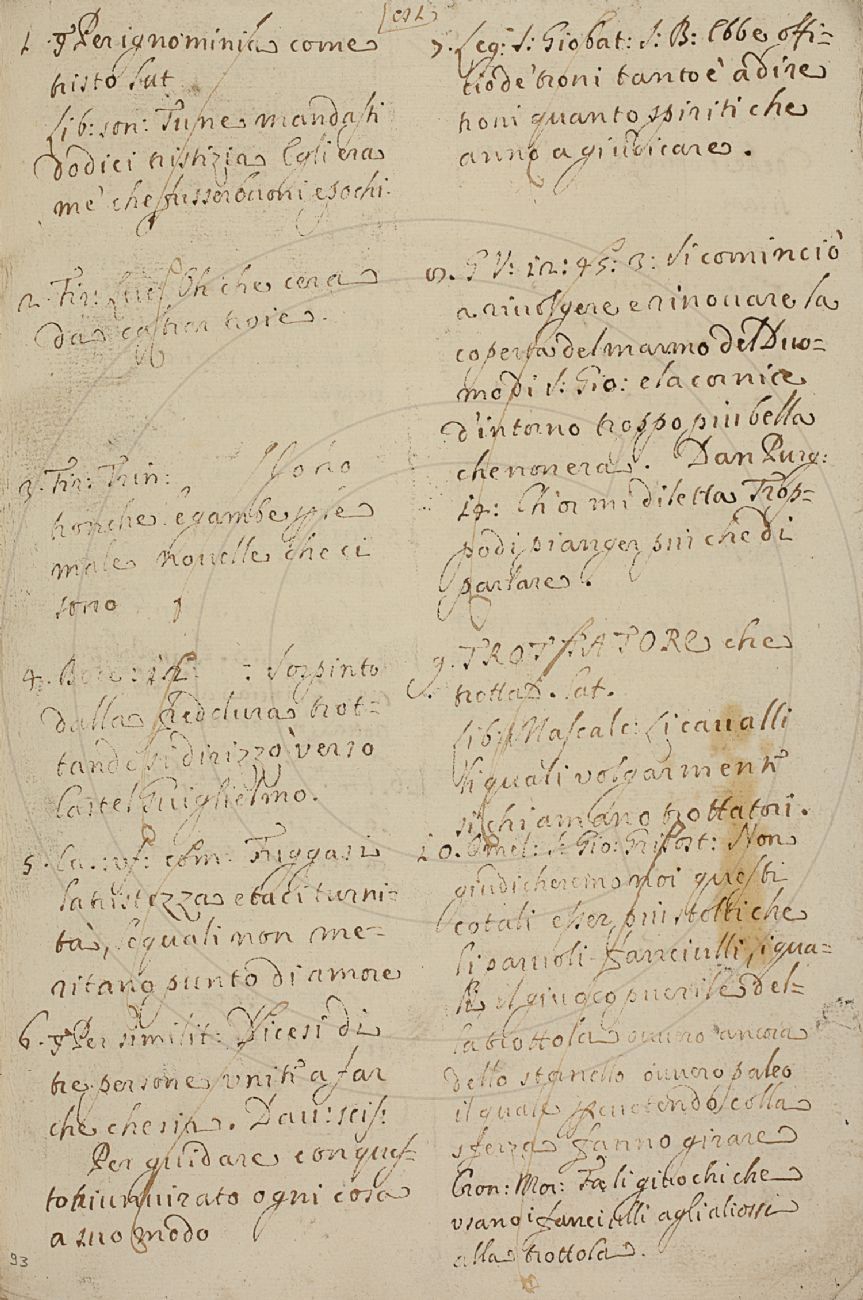 1. § Per ignominia come
tristo Lat
Lib: son: Tu ne mandasti
dodici tristizia Egli era
me' che fusser buoni e pochi.
2. Fir: Luc: Oh che cera
da castrar troie.
3. Fir: Trin:
tronche e gambe
male novelle che ci
sono
4. : Sospinto
dalla freddura trot=
tando si dirizzò verso
Castel Guiglielmo.
5. com: Fuggasi
la tristezza e taciturni=
tà, le quali non me=
ritano punto di amore
6. § Per similit: Dicesi di
tre persone unite a far
che che sia. Dav: scis:
Per guidare con ques=
to triumvirato ogni cosa
a suo modo
93
7. Leg: S: Gio bat: S: B: Ebbe offi=
tio de' troni tanto è a dire
troni quanto spiriti che
anno a giudicare.
8. G V: 12: 45: 3: Si cominciò
a rivolgere e rinovare la
coperta del marmo del Duo=
mo di S: Gio: e la cornice
d'intorno troppo più bella
che non era. Dan Purg:
14: Ch'or mi diletta Trop=
po di pianger più che di
parlare.
9. TROTTATORE che
trotta. Lat.
Lib: Mascalc: Li cavalli
li quali volgarmente
si chiamano trottatori.
10. Omel: S: Gio: Grisost: Non
giudicheremo noi questi
cotali esser più stolti che
li parvoli fanciulli, i qua=
li il giuoco puerile del=
la trottola ovvero ancora
dello stornello ovvero paleo
il quale percotendo colla
sferza fanno girare
Cron: Mor: Fa li giuochi che
usano i fanciulli agli aliossi
alla trottola.